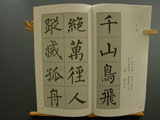 千山鳥飛
絶萬徑人
蹤滅孤舟